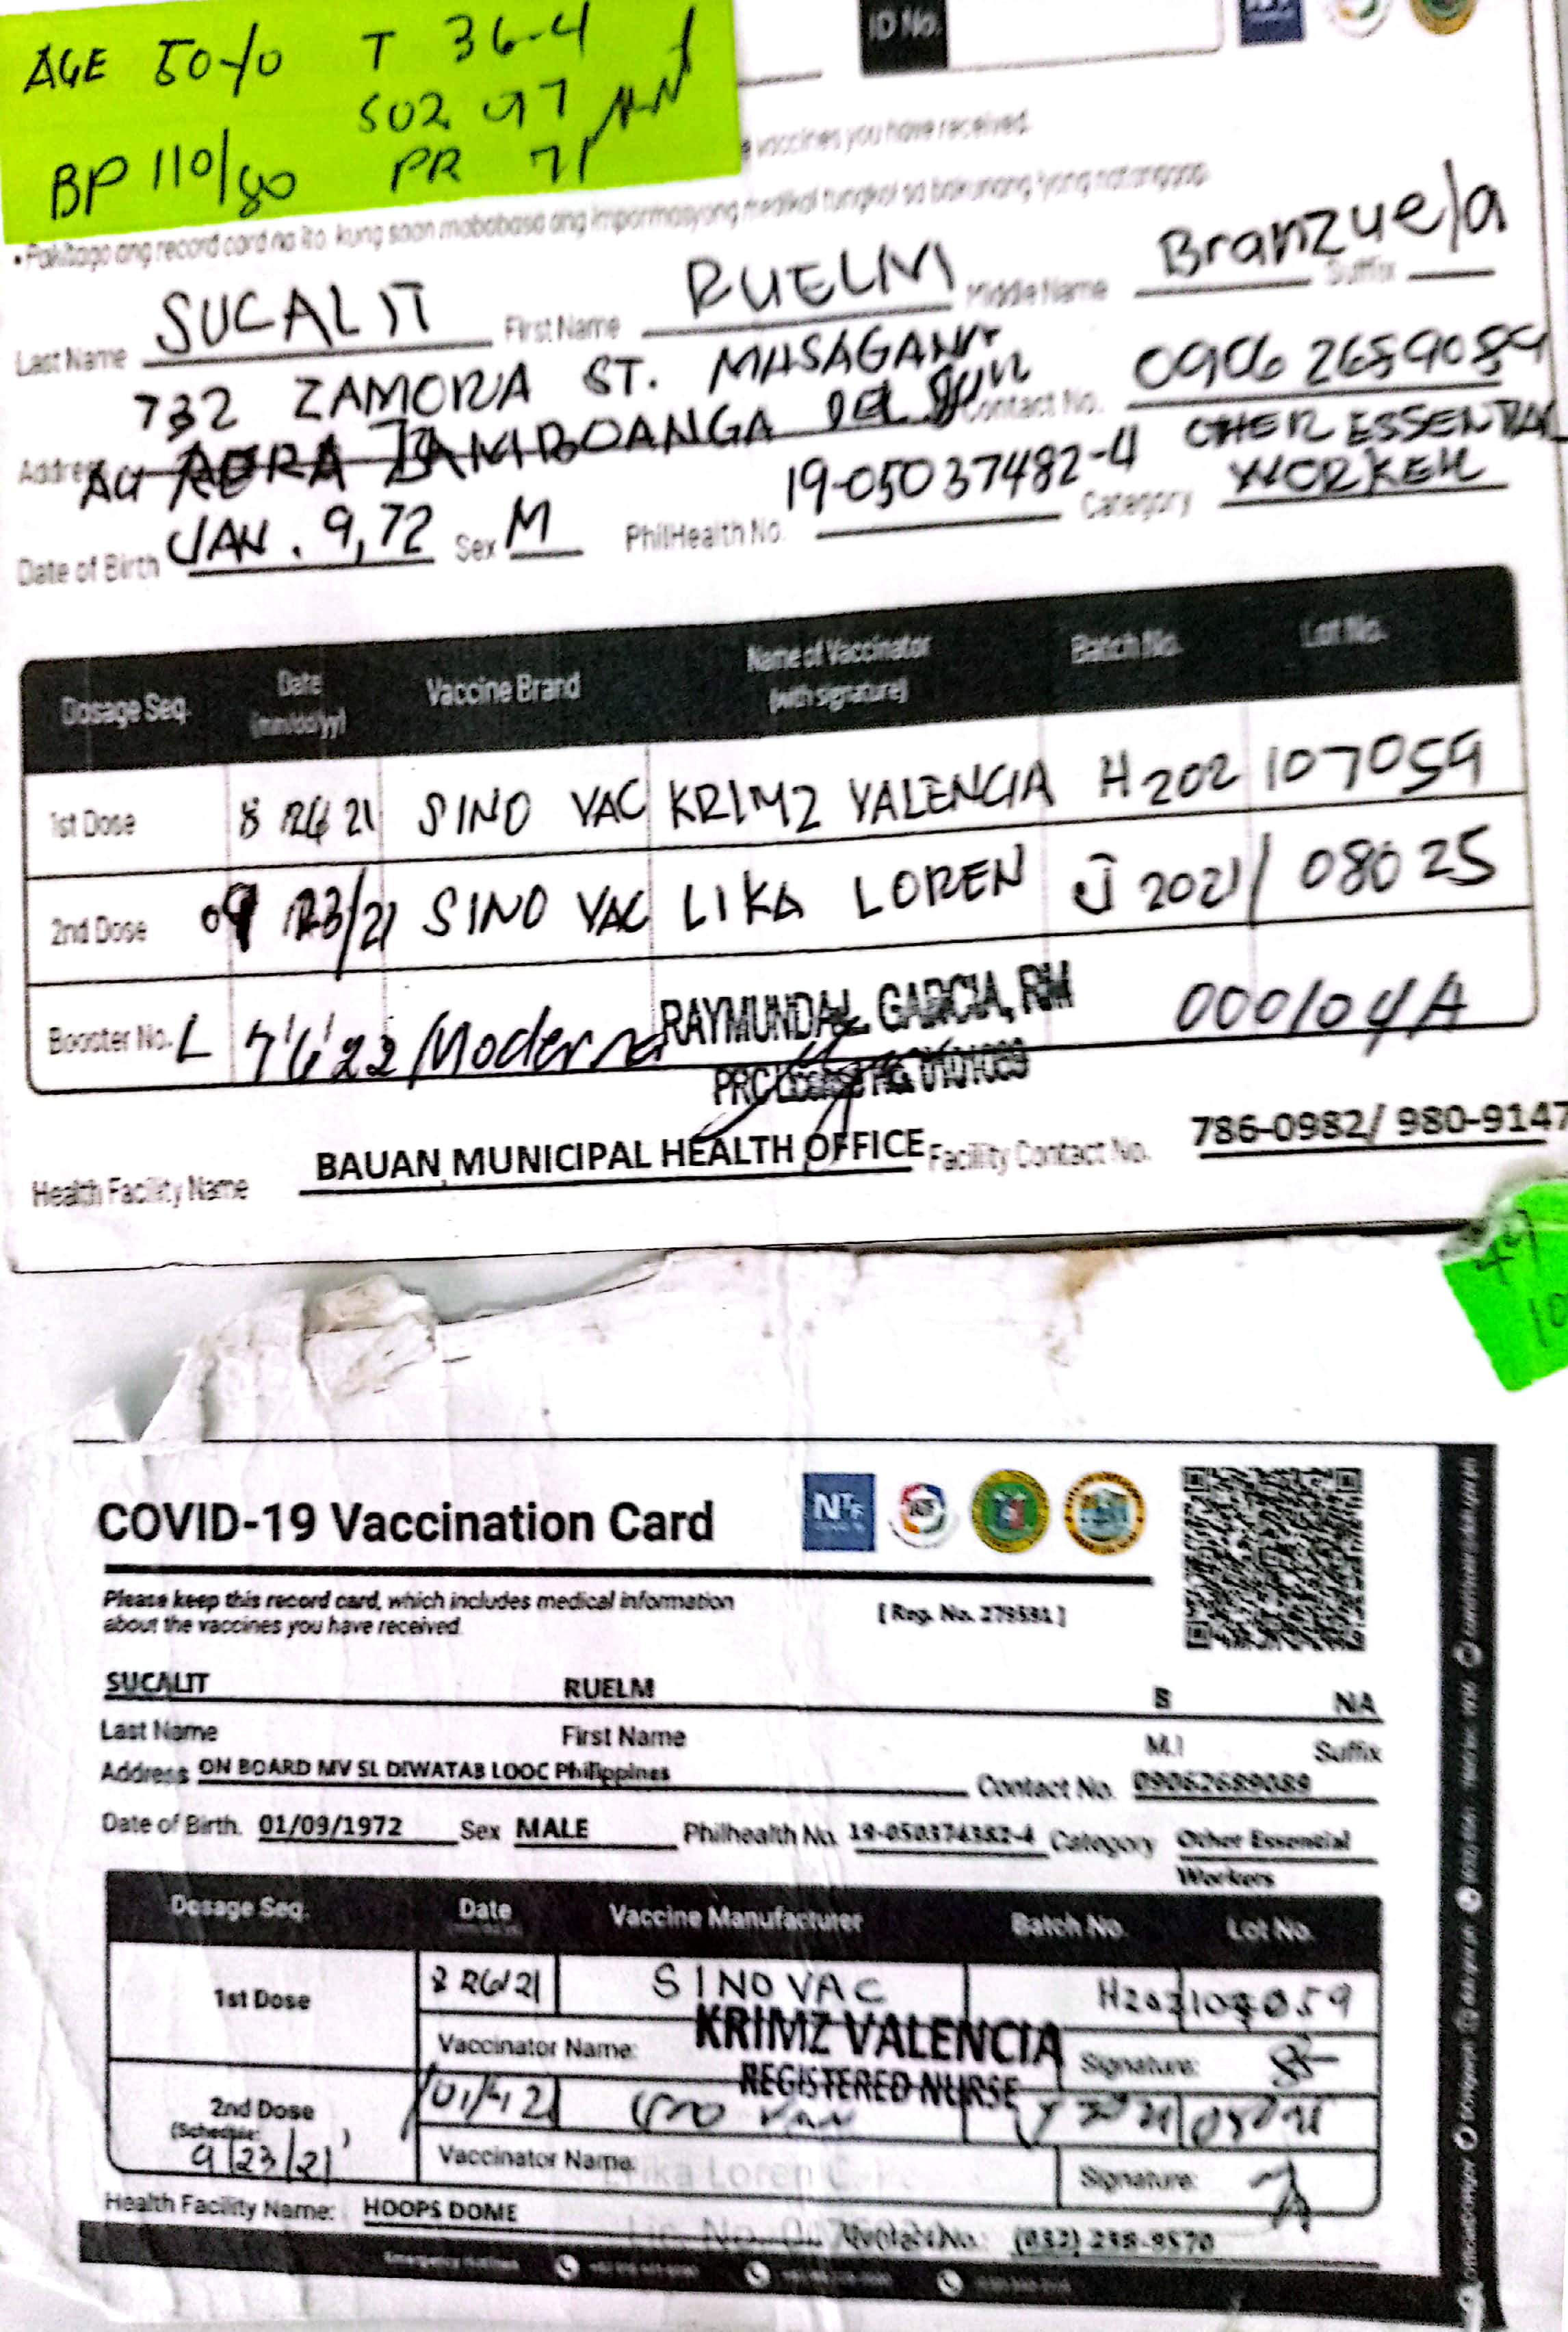 AGE 50 y/o T 36.4
SO2 97
BP 110/80 PR 71
ID No.
vaccines you have received.
• Pakitago ang record card na ito, kung saan mababasa ang impormasyong medikal tungkol sa bakunang iyong natanggap.
Last Name SUCALIT First Name RUELM Middle Name Branzuela Suffix
732 ZAMORA ST. MASAGANA
Address ZAMBOANGA DEL SUR Contact No. 09062689089
Date of Birth JAN. 9, 72 Sex M PhilHealth No. 19-05037482-4 Category OTHER ESSENTIAL WORKER
Dosage Seq. Date (mm/dd/yy) Vaccine Brand Name of Vaccinator (with signature) Batch No. Lot No.
1st Dose 8 26 21 SINO VAC KRIMZ VALENCIA H202 107059
2nd Dose 09 23/21 SINO VAC LIKA LOREN J 2021/ 08025
Booster No. 7/6/22 Moderna RAYMUNDA L. GARCIA, RM 000104A
PRC License No.
Health Facility Name BAUAN MUNICIPAL HEALTH OFFICE Facility Contact No. 786-0982/ 980-9147
COVID-19 Vaccination Card
Please keep this record card, which includes medical information
about the vaccines you have received. [ Reg. No. 279531 ]
SUCALIT RUELM B NA
Last Name First Name M.I Suffix
Address ON BOARD MV SL DIWATAB LOOC Philippines Contact No. 09062689089
Date of Birth. 01/09/1972 Sex MALE Philhealth No. 19-050374382-4 Category Other Essencial
Workers
Dosage Seq. Date Vaccine Manufacturer Batch No. Lot No.
1st Dose 8 26/21 SINOVAC H202107059
Vaccinator Name: KRIMZ VALENCIA Signature:
REGISTERED NURSE
2nd Dose
(Schedule: )
9/23/21
Vaccinator Name: Signature:
Health Facility Name: HOOPS DOME Contact No.: (032) 238-9570
Emergency Hotlines